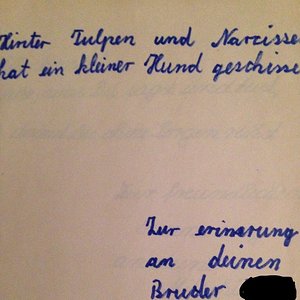 Hinter Tulpen und Narcisse
hat ein kleiner Hund geschisse
Zur erinerung
an deinen
Bruder